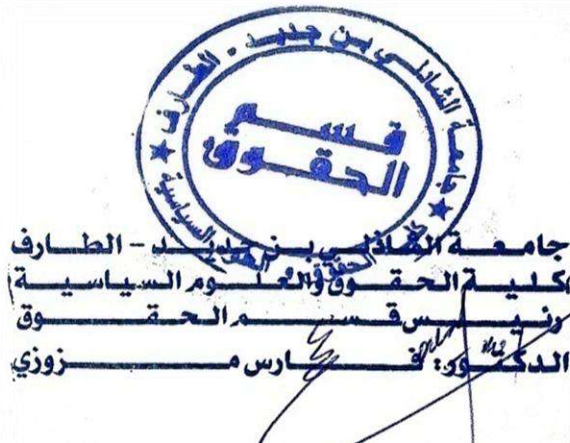 جامعة الشاذلي بن جديد - الطارف
كلية الحقوق والعلوم السياسية
قسم
الحقوق
جامعة الشاذلي بن جديد - الطارف
كلية الحقوق والعلوم السياسية
رئيس قسم الحقوق
الدكتور: فارس مزوزي